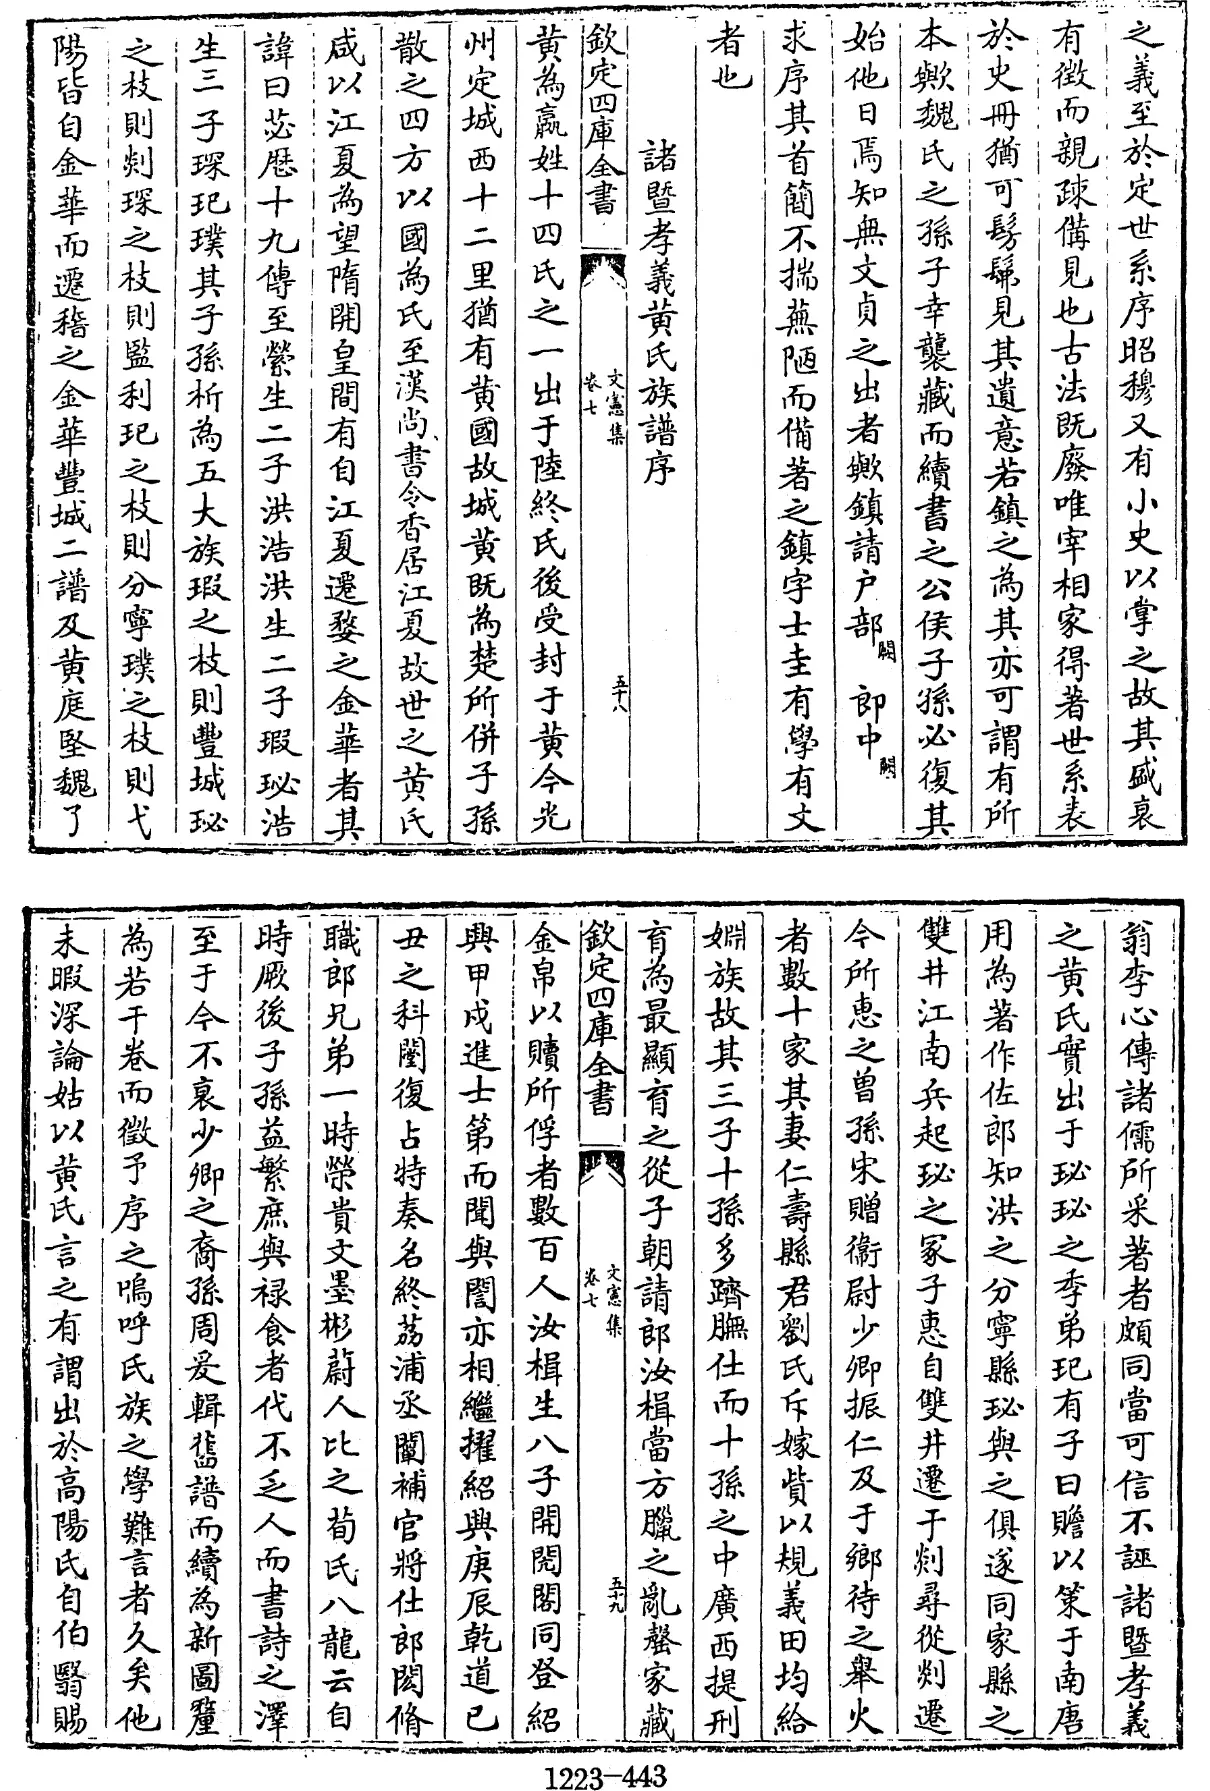 之義至於定世系序昭穆又有小史以掌之故其盛衰
有徵而親疎備見也古法既廢唯宰相家得著世系表
於史冊猶可髣髴見其遺意若鎮之為其亦可謂有所
本歟魏氏之孫子幸襲藏而續書之公侯子孫必復其
始他日焉知無文貞之出者歟鎮請戶部闕郎中闕
求序其首簡不揣蕪陋而備著之鎮字士圭有學有文
者也
諸暨孝義黃氏族譜序
欽定四庫全書
文憲集
卷七
五十八
黃為嬴姓十四氏之一出于陸終氏後受封于黃今光
州定城西十二里猶有黃國故城黃既為楚所併子孫
散之四方以國為氏至漢尚書令香居江夏故世之黃氏
咸以江夏為望隋開皇間有自江夏遷婺之金華者其
諱曰苾歷十九傳至縈生二子洪浩洪生二子瑕珌浩
生三子琛玘璞其子孫析為五大族瑕之枝則豐城珌
之枝則剡琛之枝則監利玘之枝則分寧璞之枝則弋
陽皆自金華而遷稽之金華豐城二譜及黃庭堅魏了
翁李心傳諸儒所采著者頗同當可信不誣諸暨孝義
之黃氏實出于珌珌之季弟玘有子曰贍以策于南唐
用為著作佐郎知洪之分寧縣珌與之俱遂同家縣之
雙井江南兵起珌之冢子惠自雙井遷于剡尋從剡遷
今所惠之曾孫宋贈衞尉少卿振仁及于鄉待之舉火
者數十家其妻仁壽縣君劉氏斥嫁貲以規義田均給
婣族故其三子十孫多躋膴仕而十孫之中廣西提刑
育為最顯育之從子朝請郎汝楫當方臘之亂罄家藏
欽定四庫全書
文憲集
卷七
五十九
金帛以贖所俘者數百人汝楫生八子開閌閣同登紹
興甲戌進士第而聞與誾亦相繼擢紹興庚辰乾道已
丑之科闓復占特奏名終荔浦丞闡補官將仕郎閎脩
職郎兄弟一時榮貴文墨彬蔚人比之荀氏八龍云自
時厥後子孫益繁庶與祿食者代不乏人而書詩之澤
至于今不衰少卿之裔孫周爰輯舊譜而續為新圖釐
為若干卷而徵予序之嗚呼氏族之學難言者久矣他
未暇深論姑以黃氏言之有謂出於高陽氏自伯翳賜
1223-443